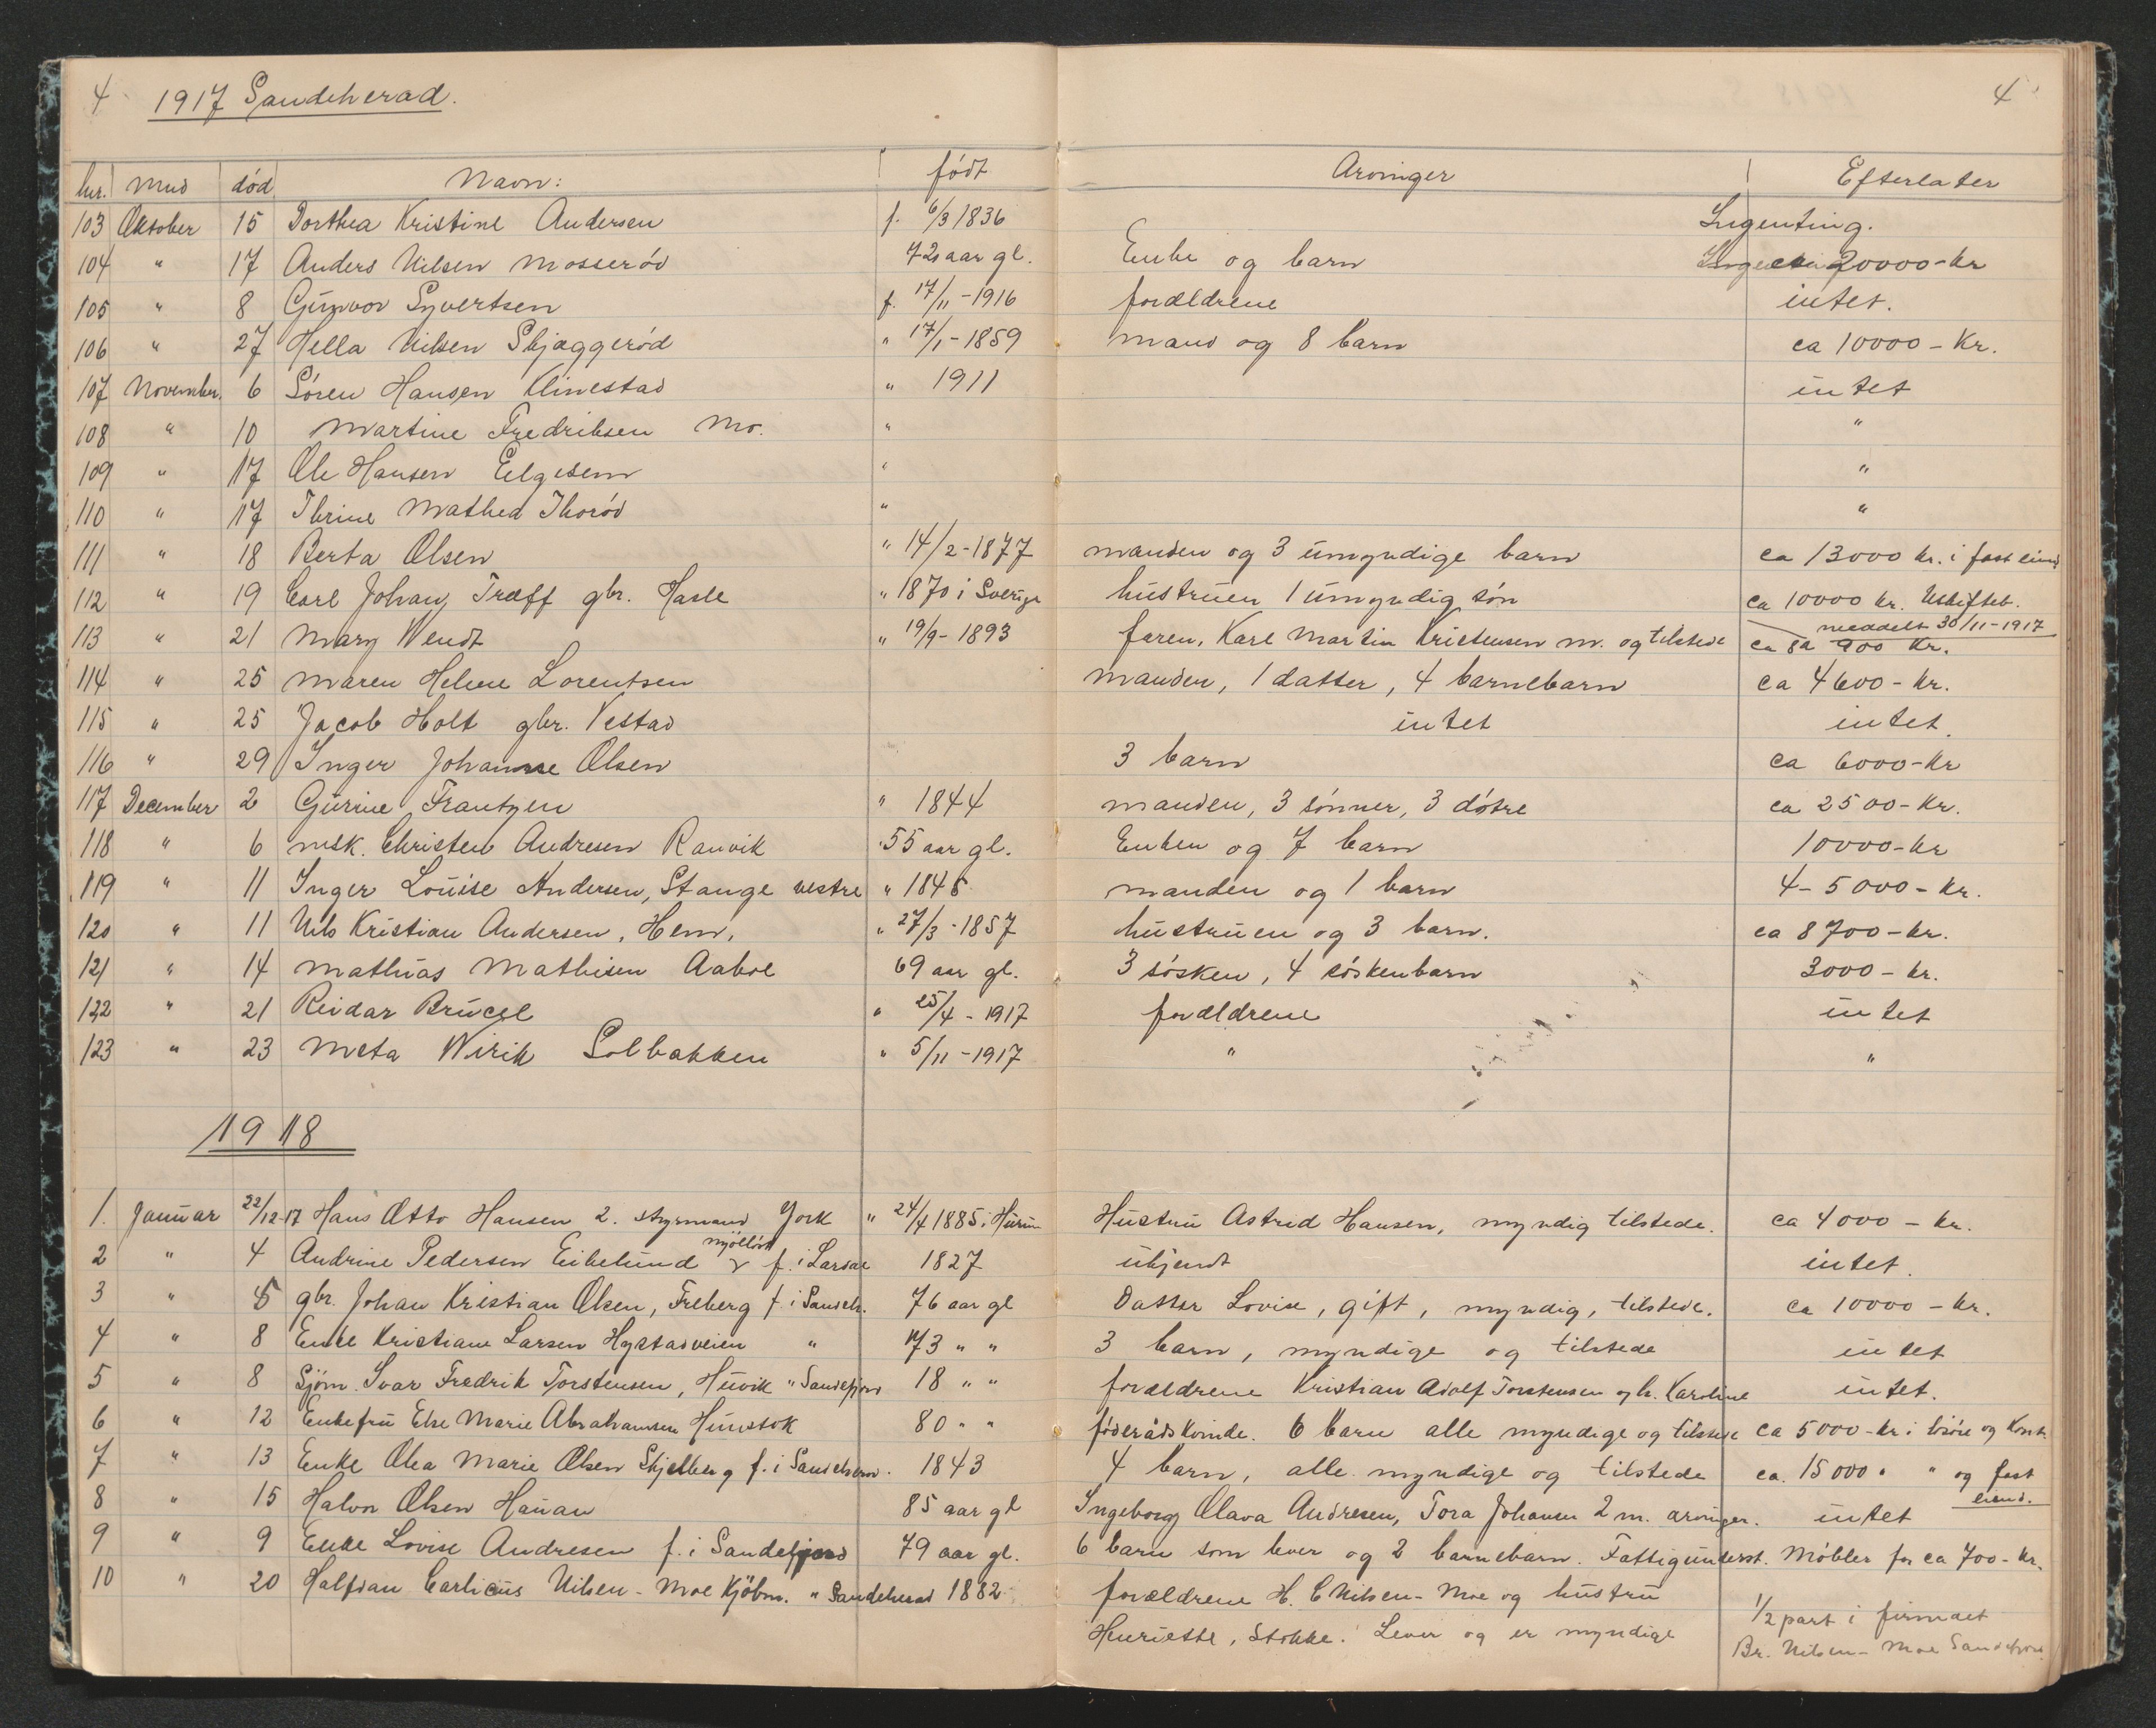 4 1917 Sandeherad. 4
lnr. Mnd død Navn: født Arvinger Efterlater
103 Oktober 15 Dorthea Kristine Andersen f. 6/3 1836 Ingenting.
104 " 17 Anders Nilsen Mosserød 72 aar gl. Enke og barn ca 20000-kr
105 " 8 Gunvor Syvertsen f. 17/11-1916 forældrene intet.
106 " 27 Hella Nilsen Skjaggerød " 17/1-1859 mand og 8 barn ca 10000-Kr.
107 November. 6 Sören Hansen Klinestad " 1911 intet
108 " 10 Martine Fredriksen Mo. " "
109 " 17 Ole Hansen " "
110 " 17 Thrine Mathea Thorød " "
111 " 18 Berta Olsen " 14/2-1877 manden og 3 umyndige barn ca 13000 kr. i fast eiend
112 " 19 Carl Johan Træff gbr. Hasle " 1870 i Sverige hustruen 1 umyndig søn ca 10000 kr. Uskifteb.
meddelt 30/11-1917
113 " 21 Mary Wendt " 19/9-1893 faren, Karl Martin Kristensen m. og tilstede ca 8 a 900 Kr.
114 " 25 Maren Helene Lorentsen manden, 1 datter, 4 barnebarn ca 4600-kr.
115 " 25 Jacob Holt gbr. Vestad intet intet.
116 " 29 Inger Johanne Olsen 3 barn ca 6000-Kr
117 December 2 Gurine Frantzen " 1844 manden, 3 sønner, 3 døtre ca 2500-Kr.
118 " 6 msk. Christen Andresen Ranvik 55 aar gl. Enken og 7 barn 10000-kr
119 " 11 Inger Louise Andersen, Stange vestre " 1845 manden og 1 barn 4-5000-kr.
120 " 11 Nils Kristian Andersen, Hem, " 27/3-1857 hustruen og 3 barn. ca 8700-kr.
121 " 14 Mathias Mathisen Aabol 69 aar gl. 3 søsken, 4 søskenbarn 3000-kr.
122 " 21 Reidar Brucel " 25/4-1917 forældrene intet
123 " 23 Meta Wirik Solbakken " 5/11-1917 " "
1918
1. Januar 22/12-17 Hans Otto Hansen 2. styrmand York " 24/4 1885 i Hurum Hustru Astrid Hansen, myndig tilstede. ca 4000-kr.
2 " 4 Andrine Pedersen Eikelund f. i Lardal 1827 ukjendt intet.
3 " 5 gbr. Johan Kristian Olsen, Freberg f. i Sandeh. 76 aar gl Datter Lovise, gift, myndig, tilstede. ca 10000-kr.
4 " 8 Enke Kristiane Larsen Hystadveien " 73 " " 3 barn, myndige og tilstede intet
5 " 8 Sjøm. Ivar Fredrik Torstensen, Huvik " Sandefjord 18 " " forældrene Kristian Adolf Torstensen og h. Karoline intet.
6 " 12 Enkefru Else Marie Abrahamsen Hunstok 80 " " føderådskvinde. 6 barn alle myndige og tilstede ca 5000-kr i løsøre og Kont.
7 " 13 Enke Olea Marie Olsen Skjelberg f. i Sandeherr. 1843 4 barn, alle myndige og tilstede ca. 15000 " " og fast
eiend.
8 " 15 Halvor Olsen Hauan 85 aar gl Ingeborg Olava Andresen, Tora Johansen 2 m. arvinger. intet
9 " 9 Enke Lovise Andresen f. i Sandefjord 79 aar gl. 6 barn som lever og 2 barnebarn. Fattigunderst. Møbler for ca 700-kr.
10 " 20 Halfdan Carlicus Nilsen-Moe Kjöbm. " Sandeherad 1882 forældrene H. C Nilsen-Moe og hustru 1/2 part i firmaet
Henriette, Stokke. Lever og er myndige Br. Nilsen-Moe Sandefjord